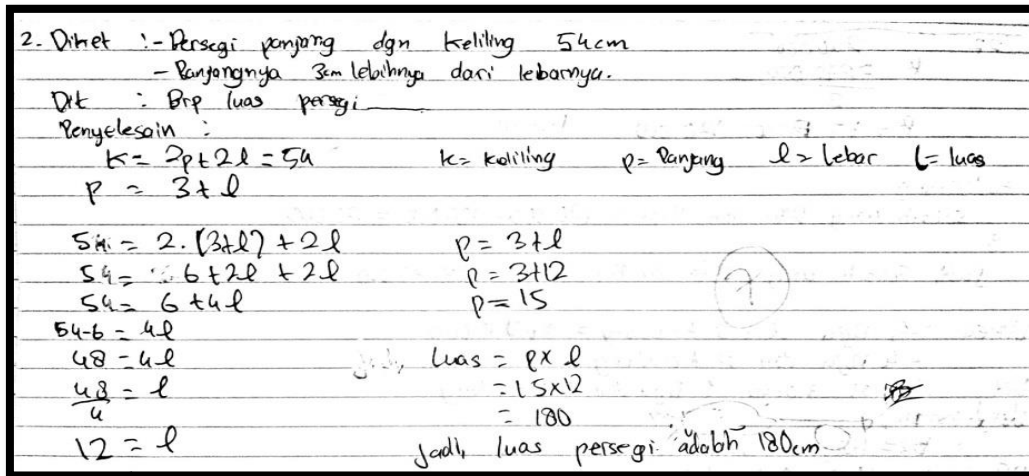 2. Diket :- Persegi panjang dgn keliling 54cm
- Panjangnya 3cm lebihnya dari lebarnya.
Dit : Brp luas persegi
Penyelesain :
K = 2p + 2l = 54 K = keliling p = Panjang l = Lebar L = luas
p = 3 + l
54 = 2.(3+l) + 2l
54 = 6 + 2l + 2l
54 = 6 + 4l
54-6 = 4l
48 = 4l
48/4 = l
12 = l
p = 3 + l
p = 3+12
p = 15
Luas = p x l
= 15x12
= 180
Jadi, luas persegi adalah 180cm
7